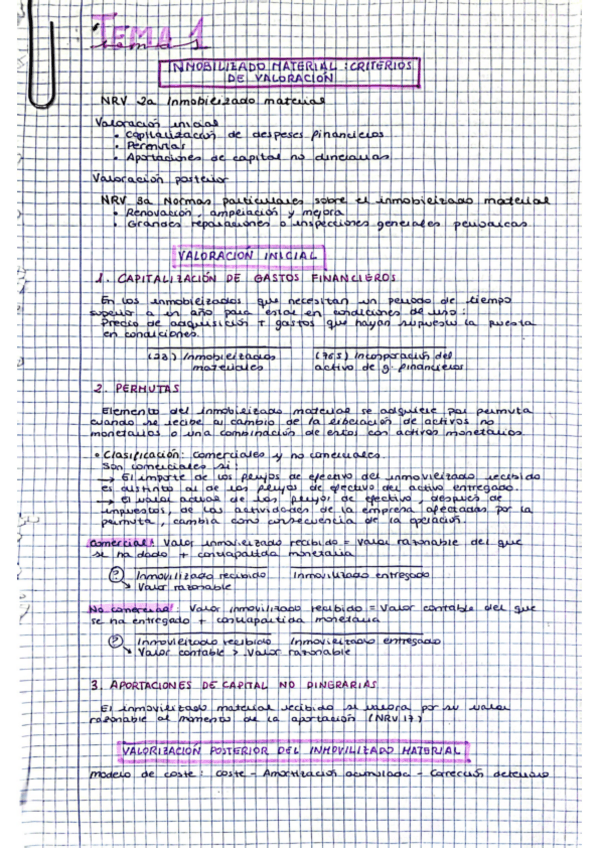 TEMA 1
INMOBILIZADO MATERIAL: CRITERIOS
DE VALORACIÓN
NRV 2a Inmobilizado material
Valoración inicial
• Capitalización de despeses financieros
• Permutas
• Aportaciones de capital no dinerarias
Valoración posterior
NRV 3a Normas particulares sobre el inmobilizado material
• Renovación, ampliación y mejora
• Grandes reparaciones o inspecciones generales
VALORACIÓN INICIAL
1. CAPITALIZACIÓN DE GASTOS FINANCIEROS
En los inmobilizados que necesitan un periodo de tiempo
superior a un año para estar en condiciones de uso:
Precio de adquisición + gastos que hayan supuesto la puesta
en condiciones.
(23) Inmobilizados (763) Incorporación del
materiales activo de g. financieros
2. PERMUTAS
Elemento del inmobilizado material se adquiere por permuta
cuando se recibe al cambio de la de activos no
monetarios o una combinación de estos con activos monetarios.
• Clasificación: comerciales y no comerciales.
Son comerciales si:
→ El importe de los flujos de efectivo del inmovilizado recibido
es distinto al de los flujos de efectivo del activo entregado.
→ el valor actual de los flujos de efectivo, después de
impuestos, de las actividades de la empresa afectadas por la
permuta, cambia como consecuencia de la operación.
Comercial: Valor inmovilizado recibido = Valor razonable del que
se ha dado + contrapartida monetaria
? Inmovilizado recibido Inmovilizado entregado
↘ Valor razonable
No comercial: Valor inmovilizado recibido = Valor contable del que
se ha entregado + contrapartida monetaria
? Inmovilizado recibido Inmovilizado entregado
↘ Valor contable > Valor razonable
3. APORTACIONES DE CAPITAL NO DINERARIAS
El inmovilizado material recibido se valora por su valor
razonable al momento de la aportación (NRV 17)
VALORIZACIÓN POSTERIOR DEL INMOVILIZADO MATERIAL
Modelo de coste: coste - Amortización acumulada - Corrección deterioro